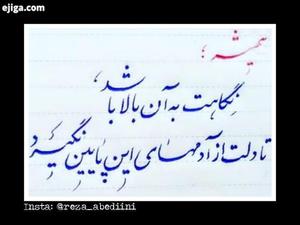 ejiga.com
همیشه ؛
نگاهت به آن بالا باشد،
تا دلت از آدمهای این پایین نگیرد
Insta: @reza_abediini